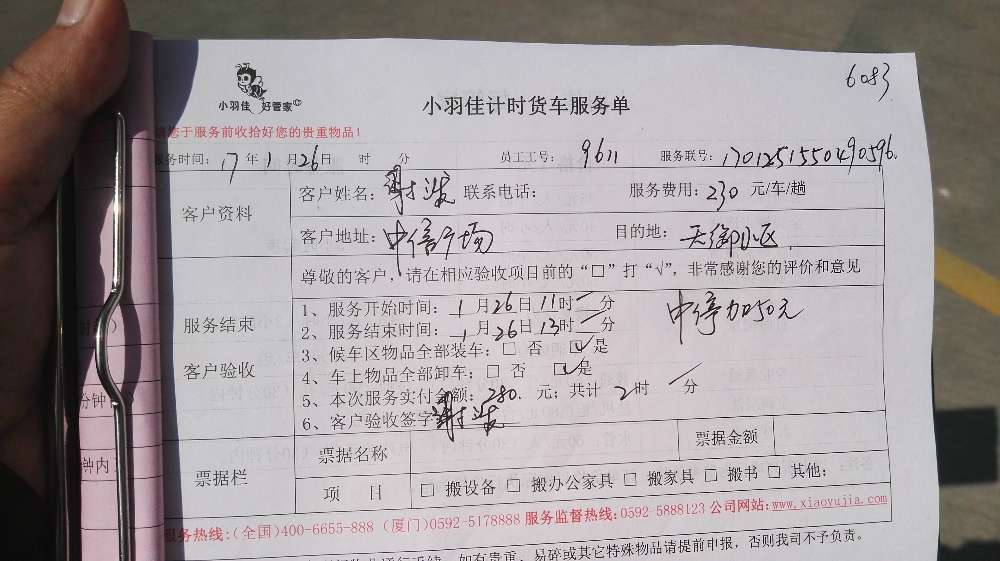 6083
小羽佳 好管家
小羽佳计时货车服务单
请您于服务前收拾好您的贵重物品！
服务时间：17年1月26日 时 分 员工工号：9611 服务联号：1701251550490596.
客户资料
客户姓名：谢发 联系电话： 服务费用：230 元/车/趟
客户地址：中信广场 目的地：天御小区
尊敬的客户，请在相应验收项目前的“□”打“√”，非常感谢您的评价和意见
服务结束
客户验收
1、服务开始时间：1月26日11时 一 分 中停加50元
2、服务结束时间：1月26日13时 一 分
3、候车区物品全部装车：□ 否 ☑是
4、车上物品全部卸车：□ 否 ☑是
5、本次服务实付金额：280. 元；共计 2时 一 分
6、客户验收签字
票据栏
票据名称 票据金额
项 目 □ 搬设备 □ 搬办公家具 □ 搬家具 □ 搬书 □ 其他：
服务热线:(全国)400-6655-888 (厦门)0592-5178888 服务监督热线:0592-5888123 公司网站:www.xiaoyujia.com
如有贵重、易碎或其它特殊物品请提前申报，否则我司不予负责。
分钟
钟内